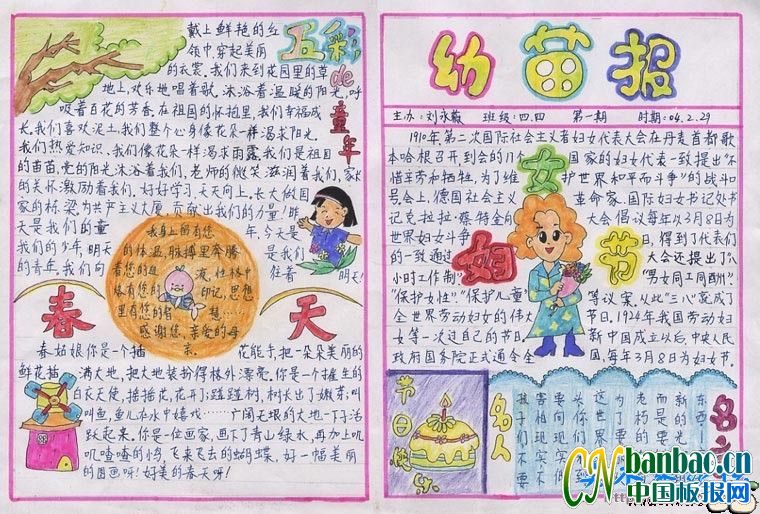 五彩
de
童年
戴上鲜艳的红
领巾,穿起美丽
的衣裳。我们来到花园里的草
地上,欢乐地唱着歌。沐浴着温暖的阳光,呼
吸着百花的芳香。在祖国的怀抱里,我们幸福成
长。我们喜欢泥土,我们整个心身像花朵一样渴求阳光。
我们热爱知识,我们像花朵一样渴求雨露。我们是祖国
的苗苗,党的阳光沐浴着我们,老师的微笑滋润着我们,家长
的关怀激励着我们,好好学习,天天向上。长大做国
家的栋梁,为共产主义大厦,贡献出我们的力量!昨
天是我们的童年,今天是
我们的少年,明天是我们
的青年。我们向往着明天!
我身上留有您
的体温,脉搏里奔腾
着您的血液,性格中
烙有您的印记,思想
里有您的智慧……
感谢您,亲爱的母
亲。
春天
春姑娘你是一个插花能手,把一朵朵美丽的
鲜花插满大地,把大地装扮得格外漂亮。你是一个催生的
白衣天使,摇摇花,花开了;碰碰树,树长出了嫩芽;叫
叫鱼,鱼儿在水中嬉戏……广阔无垠的大地一下子活
跃起来。你是一位画家,画下了青山绿水,再加上叽
叽喳喳的小鸟,飞来飞去的蝴蝶,好一幅美丽
的图画呀!好美的春天呀!
幼苗报
主办:刘永薇 班级:四.四 第一期 时期:04.2.29
妇女节
1910年,第二次国际社会主义者妇女代表大会在丹麦首都歌
本哈根召开,到会的17个国家的妇女代表一致提出"不
惜辛劳和牺牲,为了维护世界和平而斗争"的战斗口
号会上,德国社会主义革命家、国际妇女书记处书
记克拉拉·蔡特金向大会倡议每年以3月8日为
世界妇女斗争日,得到了代表们
的一致通过大会还提出了八
小时工作制"男女同工同酬"、
"保护女性"、"保护儿童"等议案,从此"三八"就成了
全世界劳动妇女的伟大节日,1924年我国劳动妇
女第一次过自己的节日,新中国成立以后,中央人民
政府国务院正式通令全国,每年3月8日为妇女节。
节日快乐
名人名言
banbao.cn
CN中国板报网